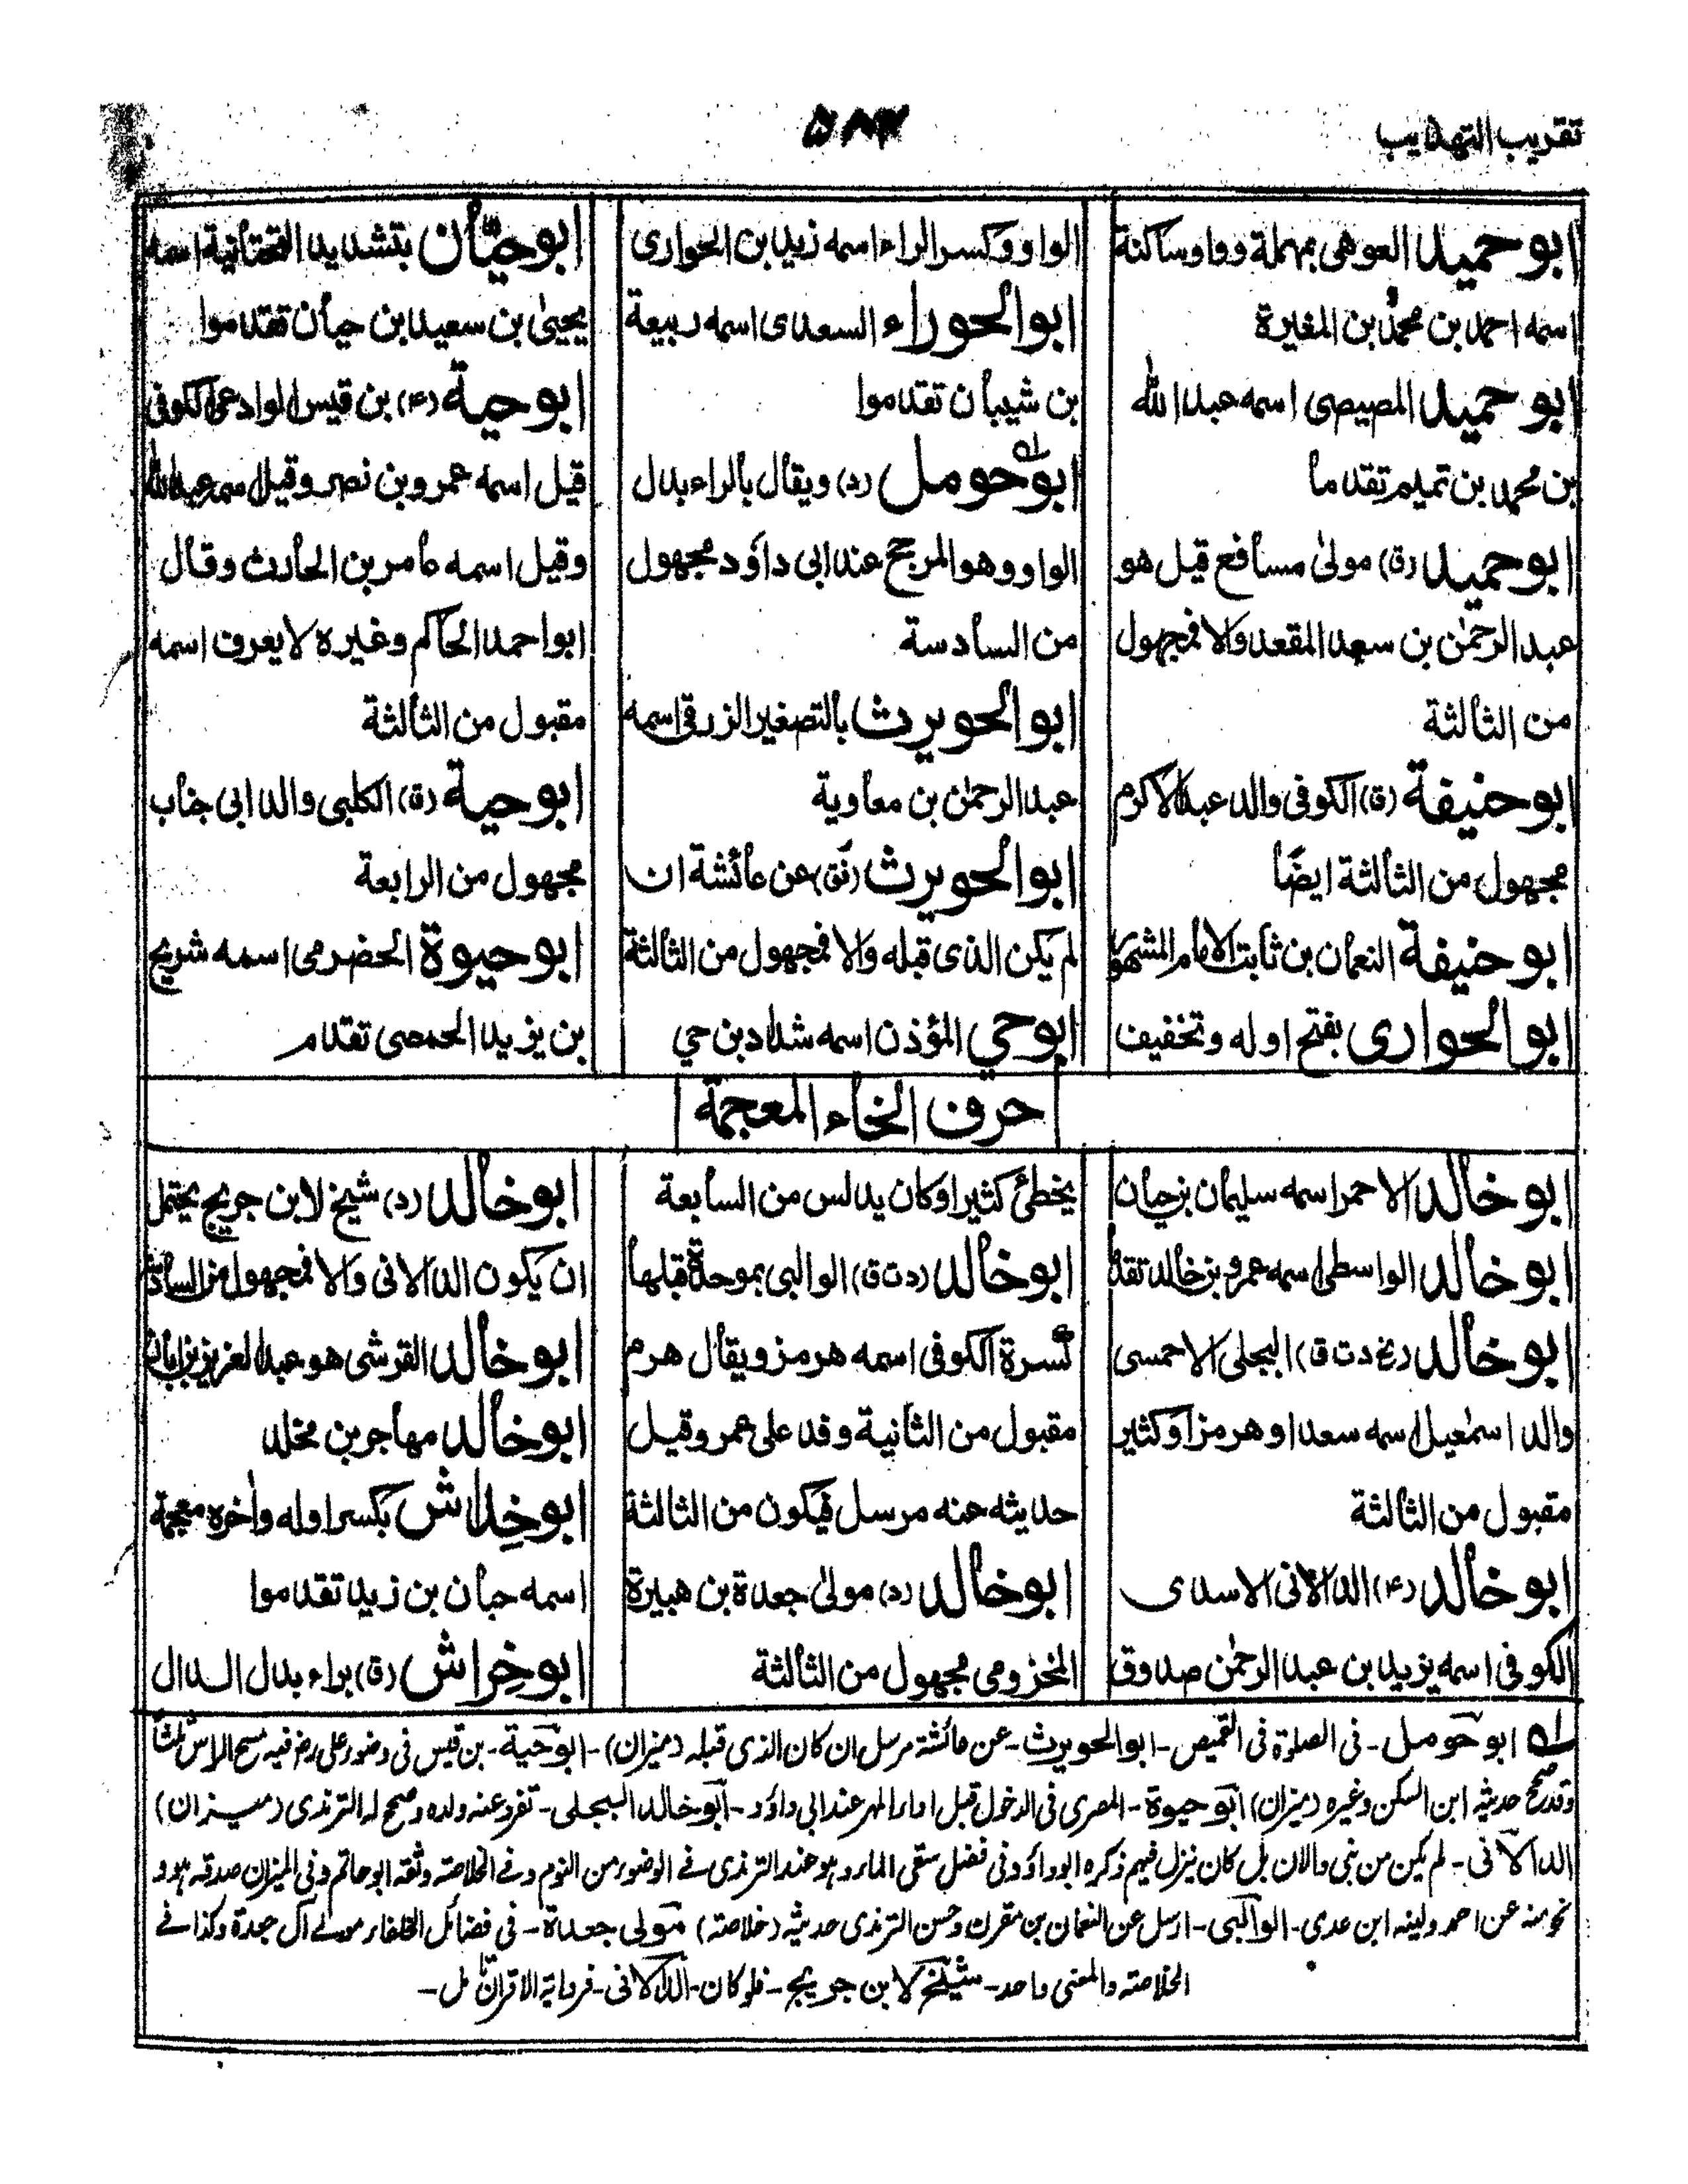 تقريب التهذيب
۵۸۳
ابو حميد العوهى بمهملة وواو ساكنة
اسمه احمد بن محمد بن المغيرة
ابو حميد المصيصى اسمه عبد الله
بن محمد بن تميم تقدما
ابو حميد (ق) مولىٰ مسافع قيل هو
عبد الرحمٰن بن سعد المقعد والا فمجهول
من الثالثة
ابو حنيفة (ق) الكوفى والد عبد الاكرم
مجهول من الثالثة ايضًا
ابو حنيفة النعمان بن ثابت الامام المشهور
ابو الحوارى بفتح اوله وتخفيف
الواو وكسر الراء اسمه زيد بن الحوارى
ابو الحوراء السعدى اسمه ربيعة
بن شيبان تقدموا
ابو حومل (د) ويقال بالراء بدل
الواو وهو المرجح عند ابى داؤد مجهول
من السادسة
ابو الحويرث بالتصغير الزرقى اسمه
عبد الرحمٰن بن معاوية
ابو الحويرث (فق) عن عائشة ان
لم يكن الذى قبله والا فمجهول من الثالثة
ابو حي المؤذن اسمه شداد بن حي
ابو حيّان بتشديد التحتانية اسمه
يحيىٰ بن سعيد بن حيان تقدموا
ابو حية (۴) بن قيس الوادعى الكوفى
قيل اسمه عمرو بن نصر وقيل اسمه عبد الله
وقيل اسمه عامر بن الحارث وقال
ابو احمد الحاكم وغيره لا يعرف اسمه
مقبول من الثالثة
ابو حية (ق) الكلبى والد ابى جناب
مجهول من الرابعة
ابو حيوة الحضرمى اسمه شريح
بن يزيد الحمصى تقدم
حرف الخاء المعجمة
ابو خالد الاحمر اسمه سليمان بن حيان
ابو خالد الواسطى اسمه عمرو بن خالد تقدما
ابو خالد (بخ د ت ق) البجلى الاحمسى
والد اسمٰعيل اسمه سعد او هرمز او كثير
مقبول من الثالثة
ابو خالد (۴) الدالانى الاسدى
الكوفى اسمه يزيد بن عبد الرحمٰن صدوق
يخطئ كثيرا وكان يدلس من السابعة
ابو خالد (د ت ق) الوالبى بموحدة قبلها
كسرة الكوفى اسمه هرمز ويقال هرم
مقبول من الثانية وفد على عمر وقيل
حديثه عنه مرسل فيكون من الثالثة
ابو خالد (د) مولىٰ جعدة بن هبيرة
المخزومى مجهول من الثالثة
ابو خالد (د) شيخ لابن جريج يحتمل
ان يكون الدالانى والا فمجهول من السادسة
ابو خالد القرشى هو عبد العزيز بن ابان
ابو خالد مهاجر بن مخلد
ابو خِداش بكسر اوله واٰخره معجمة
اسمه حبان بن زيد تقدموا
ابو خِراش (ق) براء بدل الدال
له ابو حومل - فى الصلوة فى القميص - ابو الحويرث - عن عائشة مرسل ان كان الذى قبله (ميزان) - ابو حية - بن قيس فى وضوء على رض فيه مسح الراس ثلثا
وقد صحح حديثه ابن السكن وغيره (ميزان) ابو حيوة - المصرى فى الدخول قبل اداء المهر عند ابى داؤد - ابو خالد البجلى - تفرد عنه ولده وصحح له الترمذى (ميزان)
الدالانى - لم يكن من بنى دالان بل كان ينزل فيهم ذكره ابو داؤد فى فضل سقى الماء وهو عند الترمذى فى الوضوء من النوم وفى الخلاصته وثقه ابو حاتم وفى الميزان صدقه هو و
نحو منه عن احمد ولينه ابن عدى - الوالبى - ارسل عن النعمان بن مقرن وحسن الترمذى حديثه (خلاصته) مولى جعدة - فى فضائل الخلفاء مولى آل جعدة وكذا فى
الخلاصته والمعنى واحد - شيخ لابن جريج - فلو كان الدالانى - فرواية الاقران -